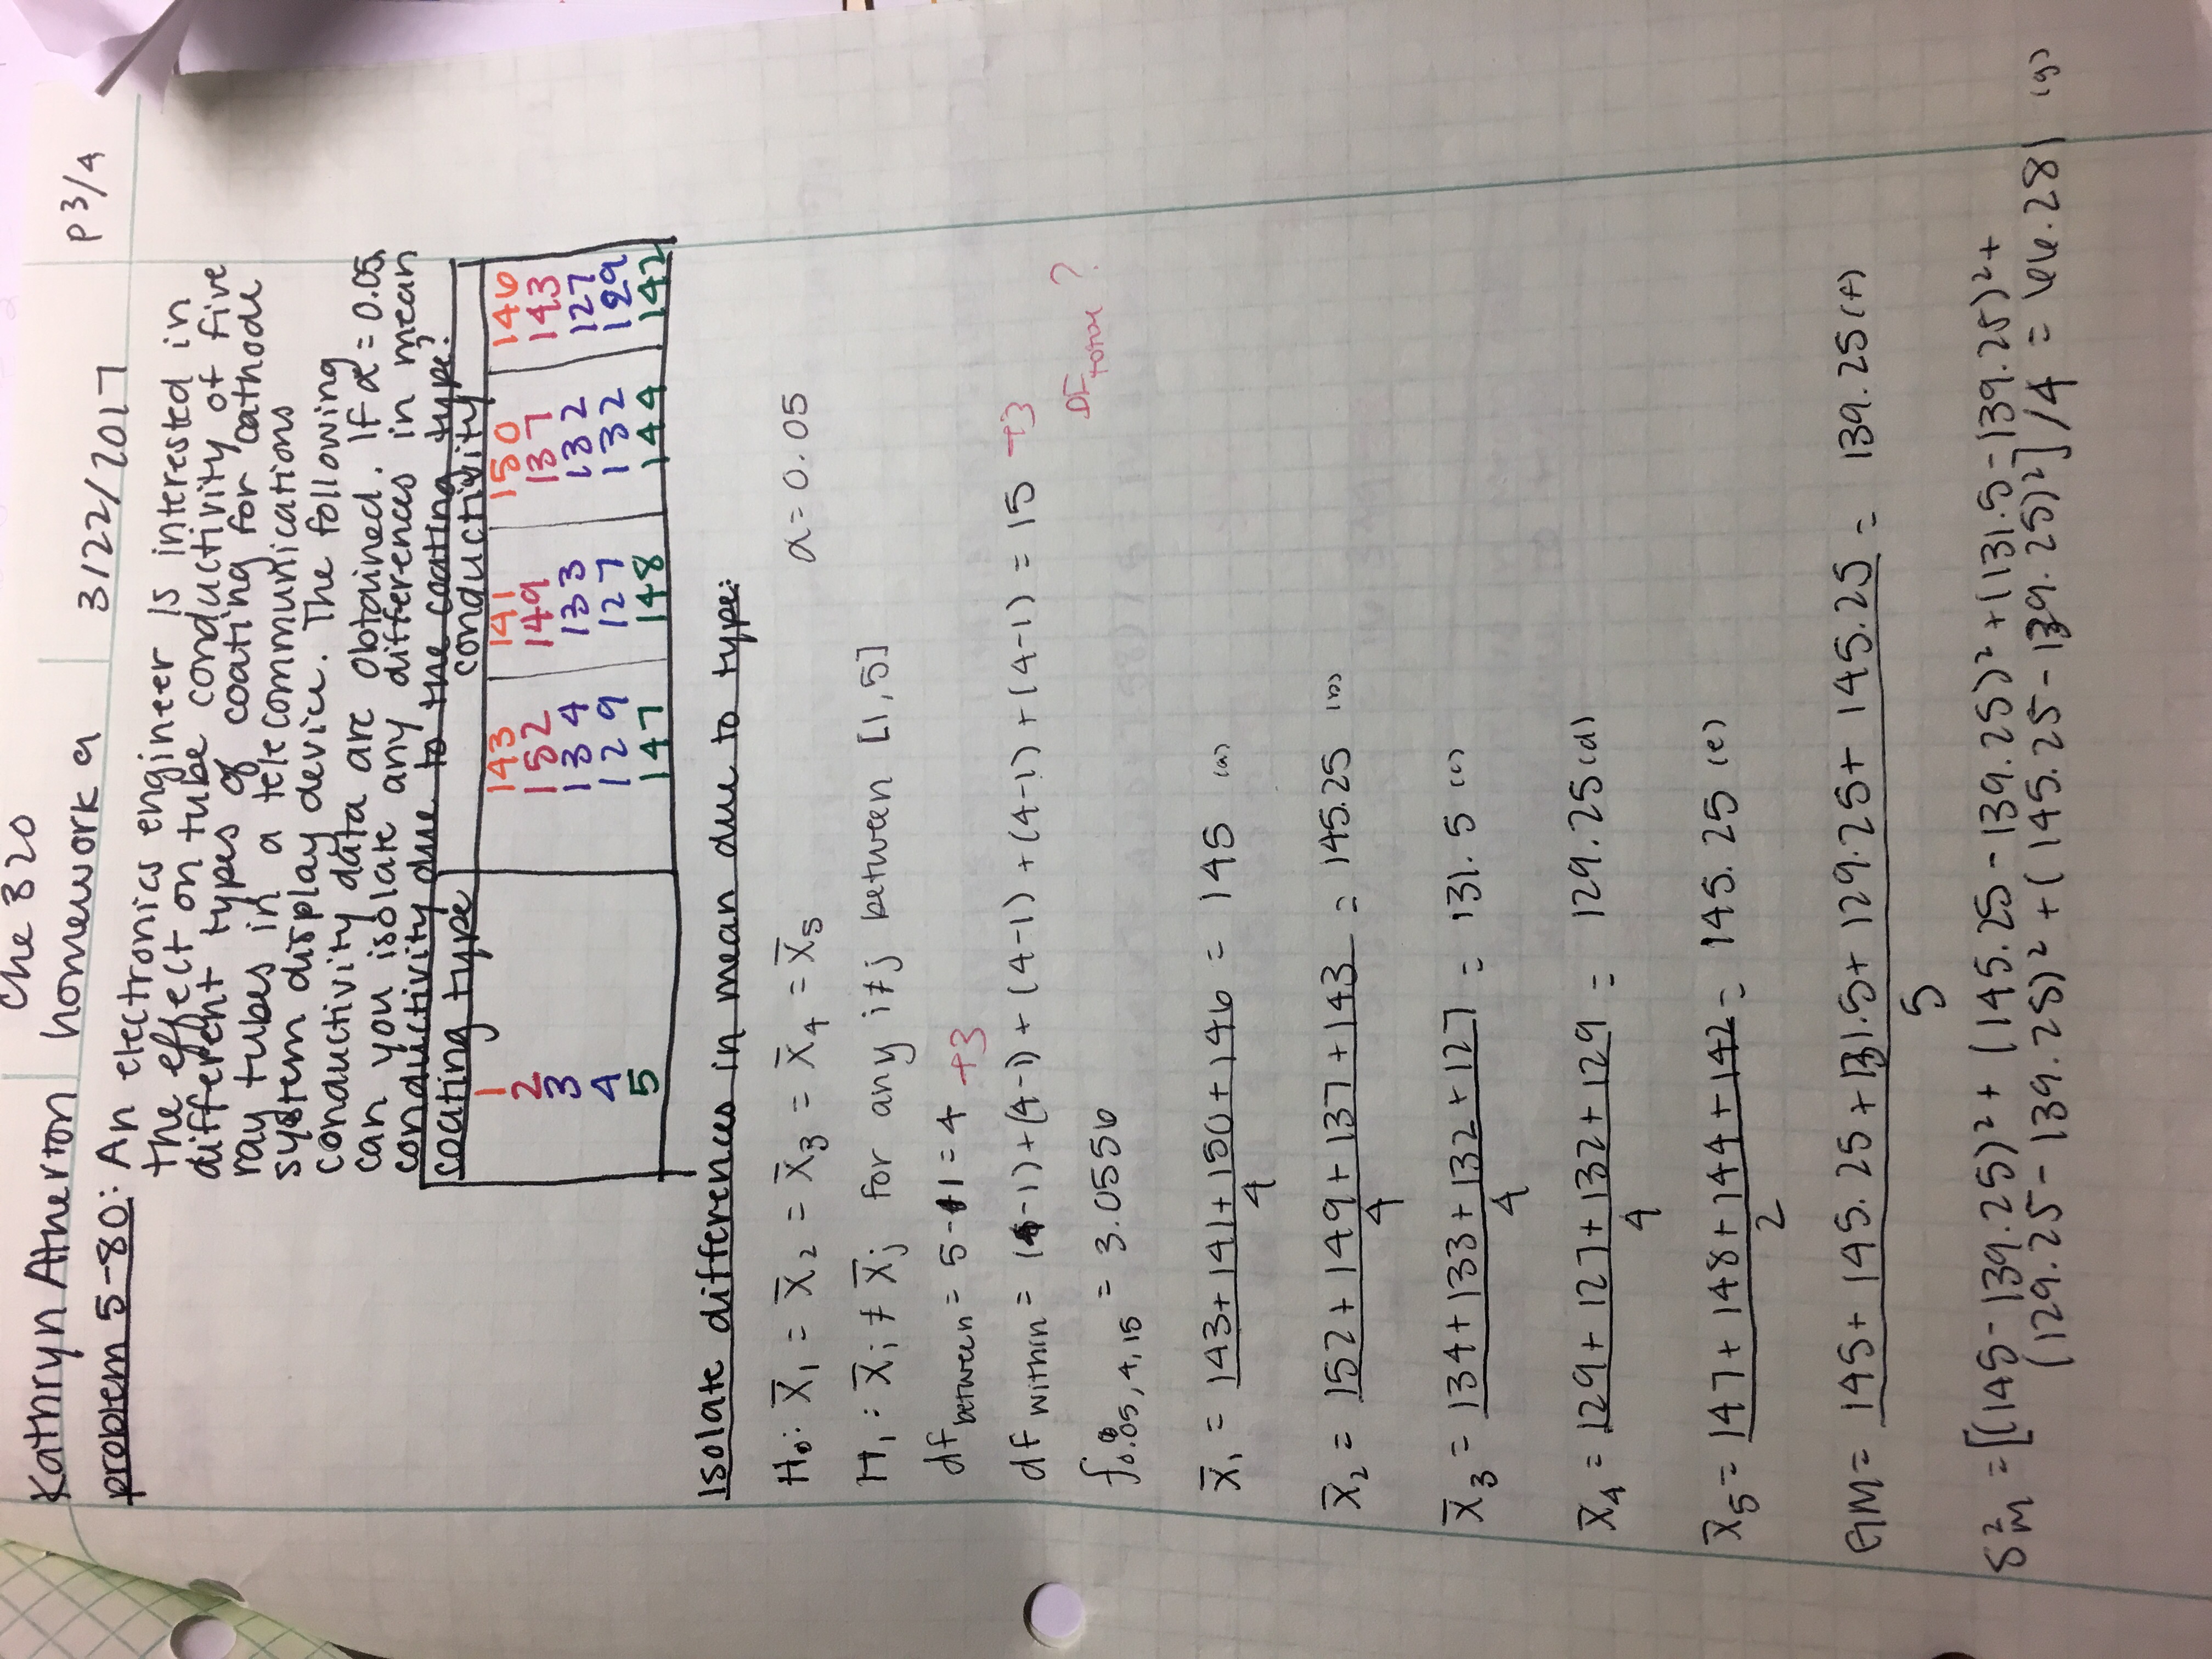 Kathryn Atherton
Che 320
homework 9
3/22/2017
p 3/4
problem 5-80: An electronics engineer is interested in
the effect on tube conductivity of five
different types of coating for cathode
ray tubes in a telecommunications
system display device. The following
conductivity data are obtained. If α = 0.05,
can you isolate any differences in mean
conductivity due to the coating type?
coating type conductivity
1 143 141 150 146
2 152 149 137 143
3 134 133 132 127
4 129 127 132 129
5 147 148 144 142
Isolate differences in mean due to type:
H₀: x̄₁ = x̄₂ = x̄₃ = x̄₄ = x̄₅ α = 0.05
H₁: x̄ᵢ ≠ x̄ⱼ for any i≠j between [1,5]
df between = 5-1 = 4 +3
df within = (4-1)+(4-1)+(4-1)+(4-1)+(4-1) = 15 +3
DF total ?
f0.05,4,15 = 3.0556
x̄₁ = 143+141+150+146 = 145 (a)
4
x̄₂ = 152+149+137+143 = 145.25 (b)
4
x̄₃ = 134+133+132+127 = 131.5 (c)
4
x̄₄ = 129+127+132+129 = 129.25 (d)
4
x̄₅ = 147+148+144+142 = 145.25 (e)
2
GM = 145+145.25+131.5+129.25+145.25 = 139.25 (f)
5
S²M = [(145-139.25)²+(145.25-139.25)²+(131.5-139.25)²+
(129.25-139.25)²+(145.25-139.25)²]/4 = 66.281 (g)